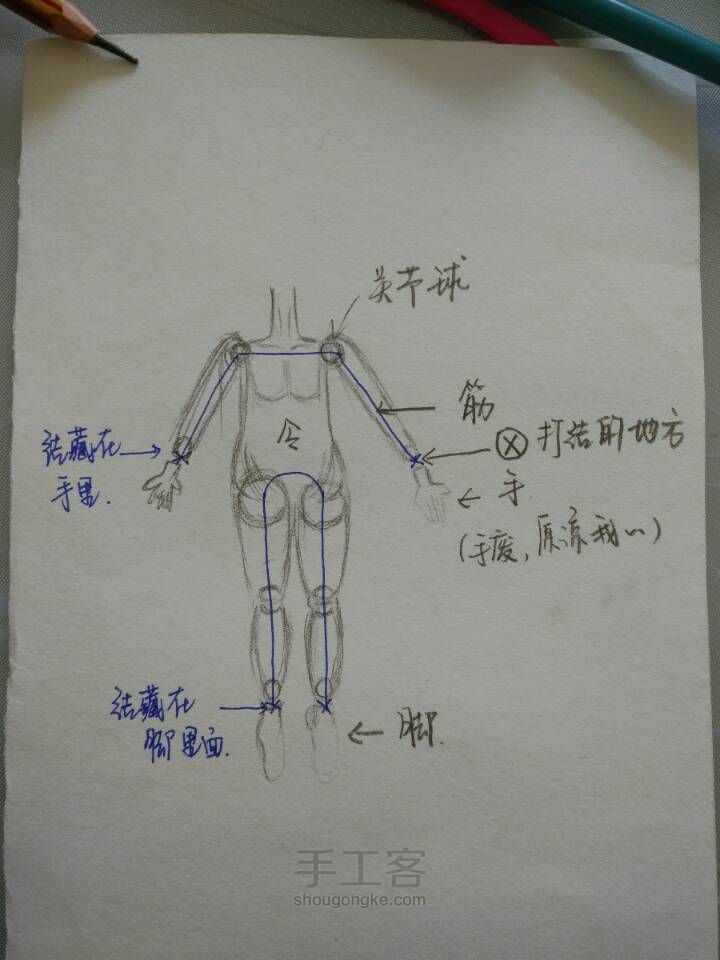 关节球
筋
ⓧ 打结的地方
结藏在
手里.
手
(手废,原谅我~)
结藏在
脚里面.
脚.
手工客
shougongke.com